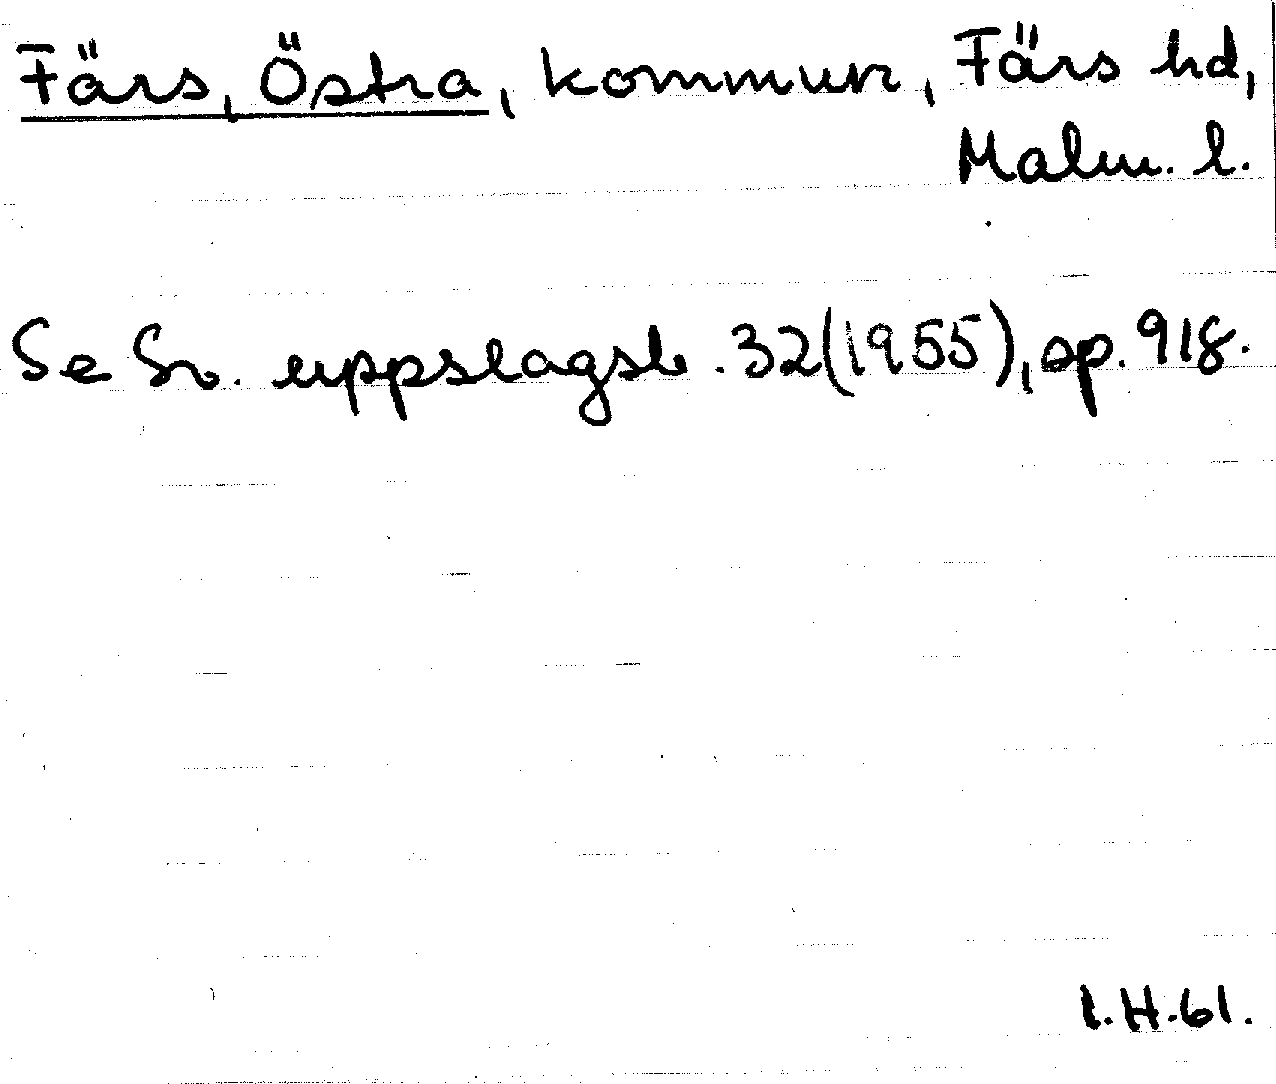 Färs, Östra, kommun, Färs hd,
Malm. l.
Se Sv. uppslagsb. 32(1955), sp. 918.
I.H.61.